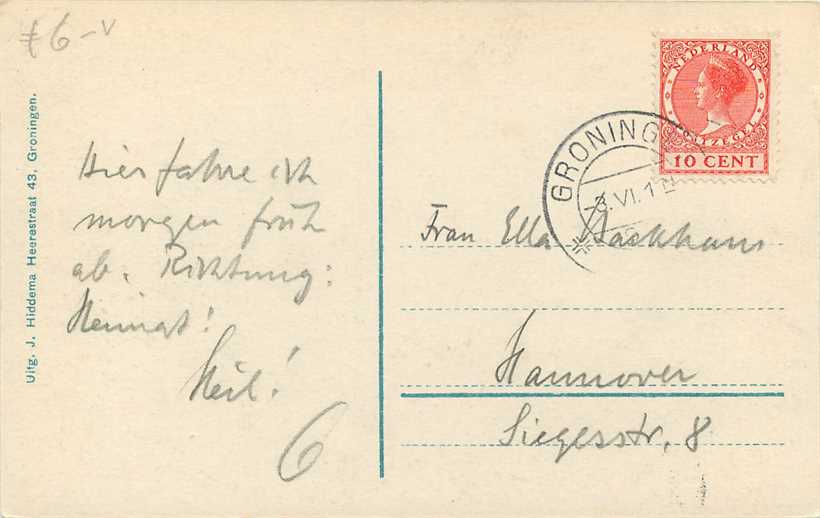 6-
Uitg. J. Hiddema Heerestraat 43, Groningen.
Hier fahre ich
morgen früh
ab. Richtung:
Heimat!
Heil!
6
NEDERLAND
POSTZEGEL
10 CENT
GRONING
3.VI.1
Frau Ella Backhaus
Hannover
Siegesstr. 8